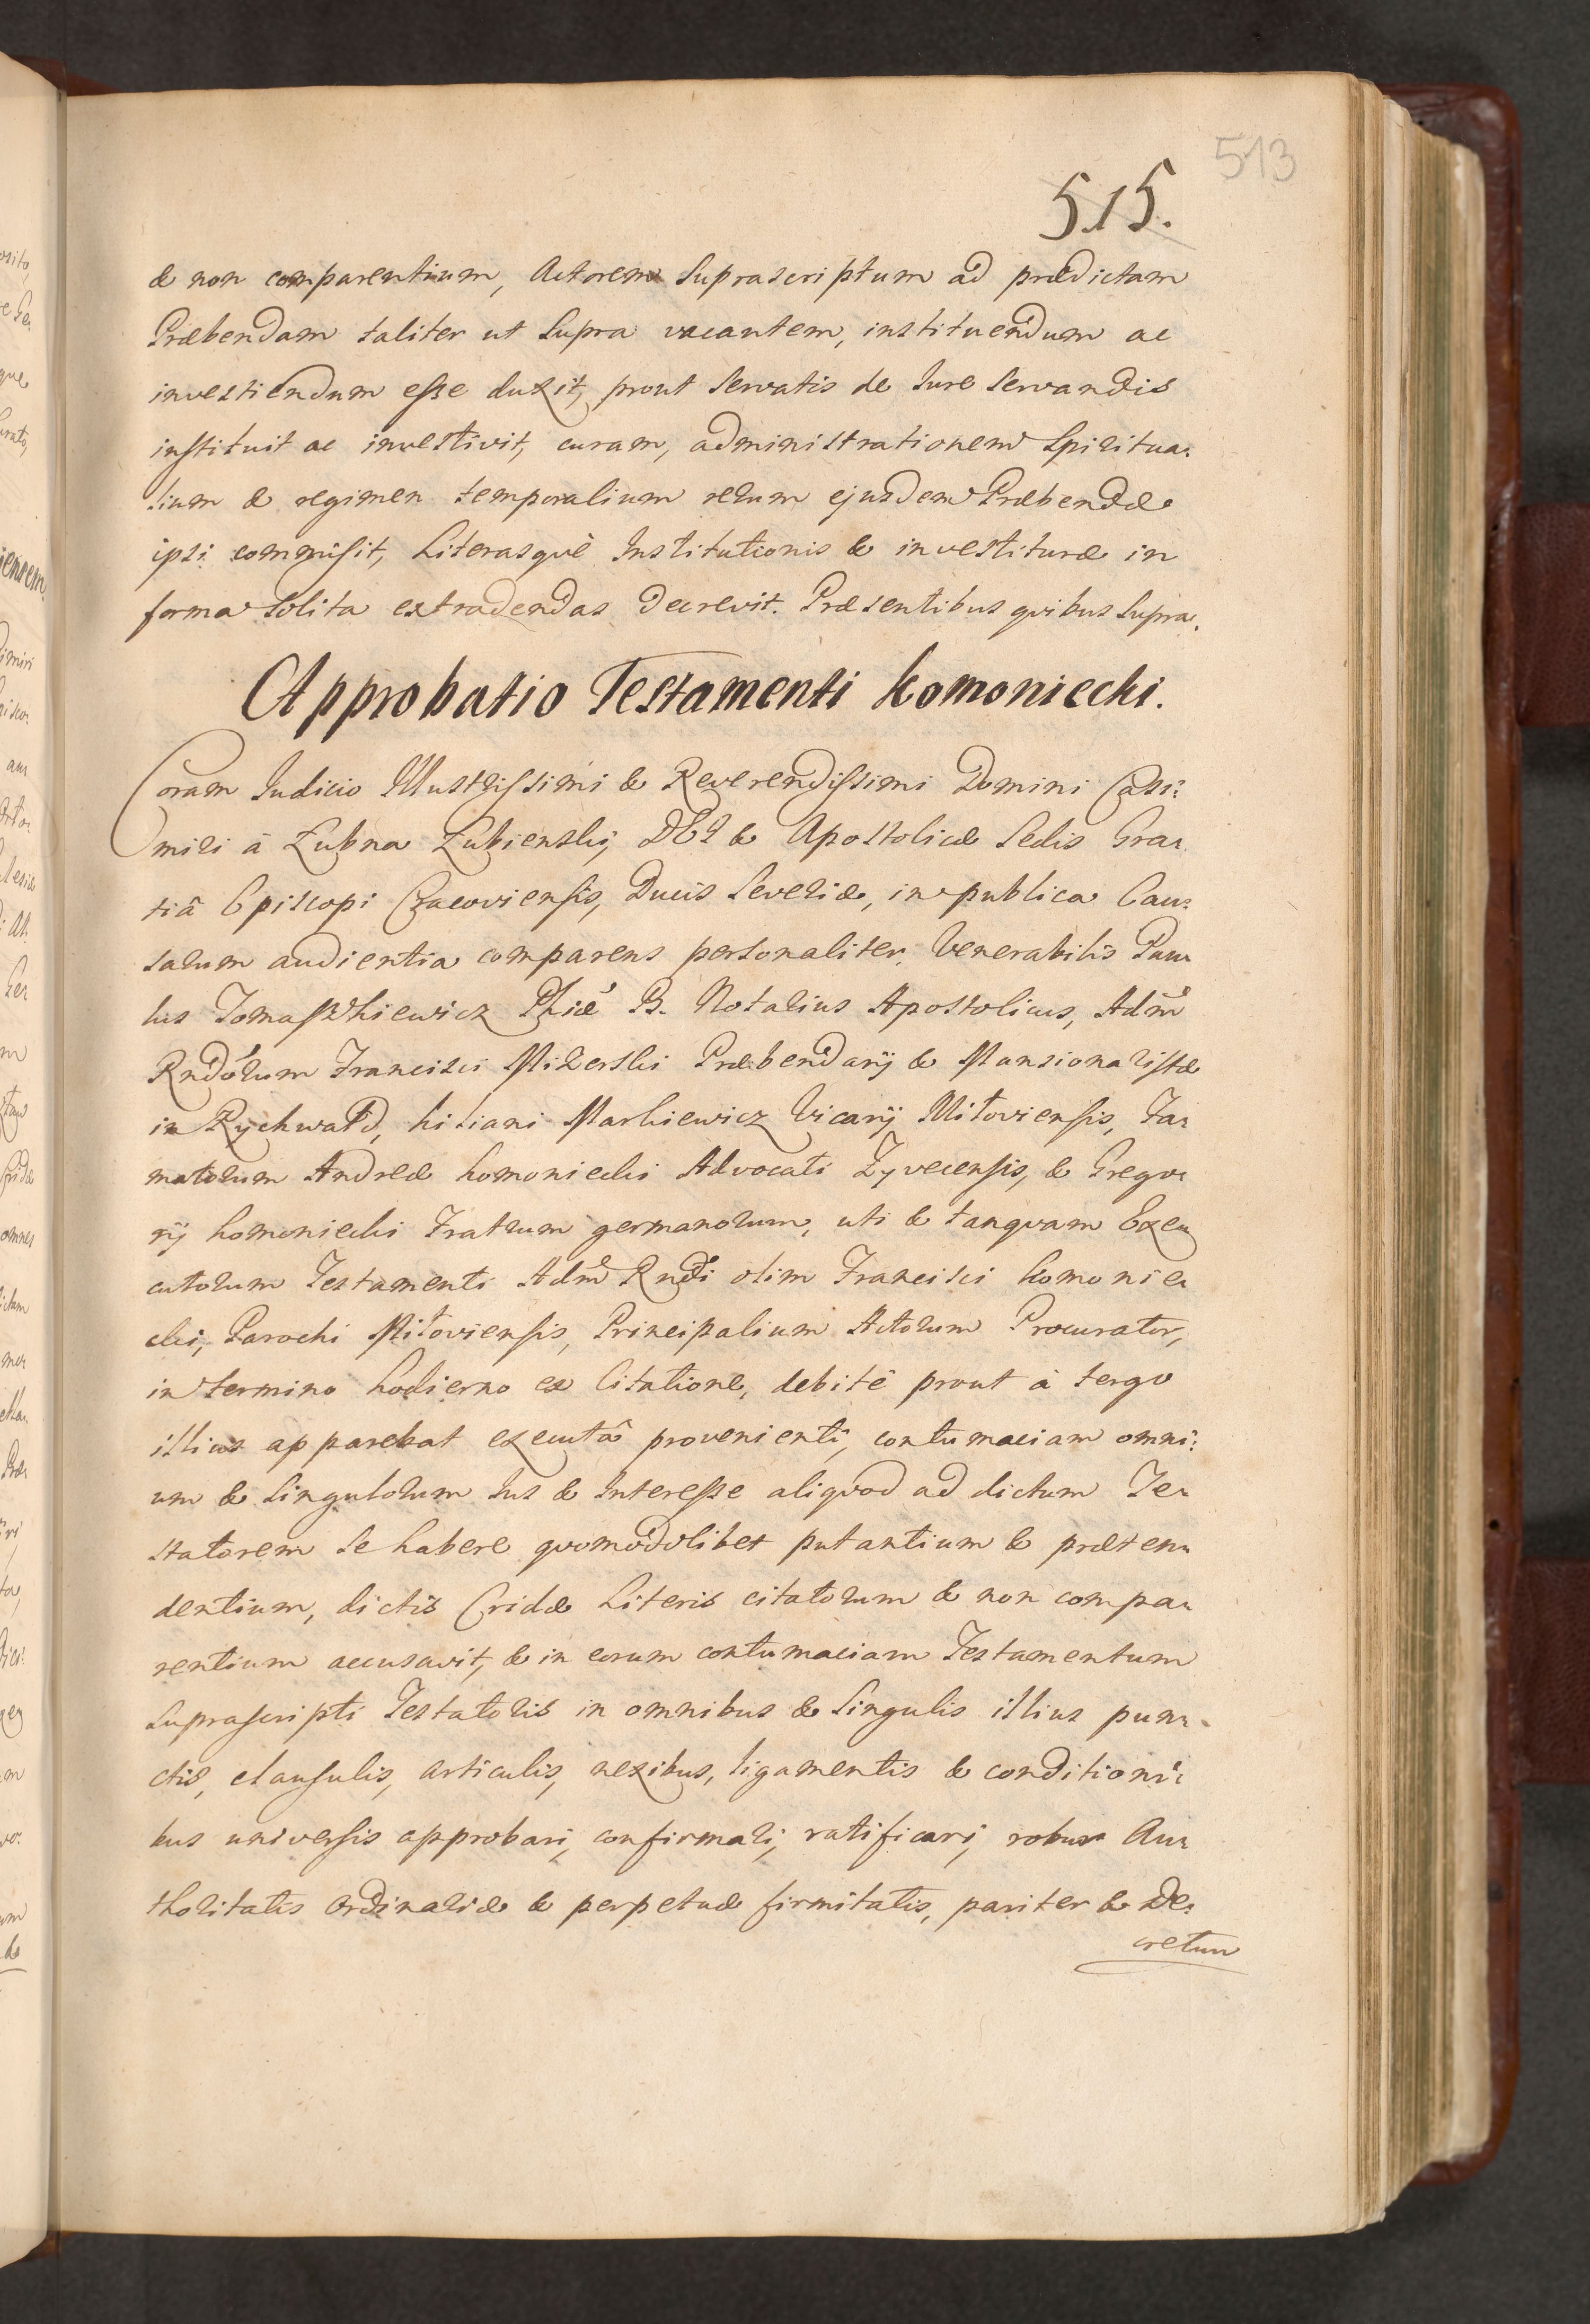 513
515.
& non comparentium, Actorem Suprascriptum ad prædictam
Præbendam taliter ut Supra vacantem, instituendum ac
investiendum esse duxit, prout Servatis de Iure Servandis
instituit ac investivit, curam, administrationem Spiritua:
lium & regimen temporalium rerum ejusdem Præbendæ
ipsi commisit, Literasquè Institutionis & investituræ in
forma Solita extradendas decrevit. Præsentibus quibus Supra.
Approbatio Testamenti Komoniecki.
Coram Iudicio Illustrissimi & Reverendissimi Domini Casi:
miri à Łubna Łubienski, DEI & Apostolicæ Sedis Gra:
tiâ Episcopi Cracoviensis, Ducis Severiæ, in publica Cau:
sarum audientia comparens personaliter Venerabilis Pau:
lus Tomaszkiewicz Phiæ B. Notarius Apostolicus, Adm̃
Rndorum Francisci Mikerski Præbendarij & Mansionaristæ
in Rychwałd, Kiliani Markiewicz Vicarij Miłoviensis, Fa:
matorum Andreæ Komoniecki Advocati Zyvecensis, & Grego:
rij Komoniecki Fratrum germanorum, uti & tanquam Exe:
cutorum Testamenti Adm̃ Rndi olim Francisci Komonie:
cki, Parochi Miłoviensis, Principalium Actorum Procurator,
in termino hodierno ex Citatione, debitè prout à tergo
illius apparebat executâ provenienti, contumaciam omni:
um & Singulorum Ius & Interesse aliquod ad dictum Te:
statorem Se habere quomodolibet putantium & præten:
dentium, dictis Cridæ Literis citatorum & non compa:
rentium accusavit, & in eorum contumaciam Testamentum
Suprascripti Testatoris in omnibus & Singulis illius pun:
ctis, clausulis, articulis, nexibus, ligamentis & conditioni:
bus universis approbari, confirmari, ratificari, robur Au:
thoritatis Ordinariæ & perpetuæ firmitatis, pariter & De:
cretum